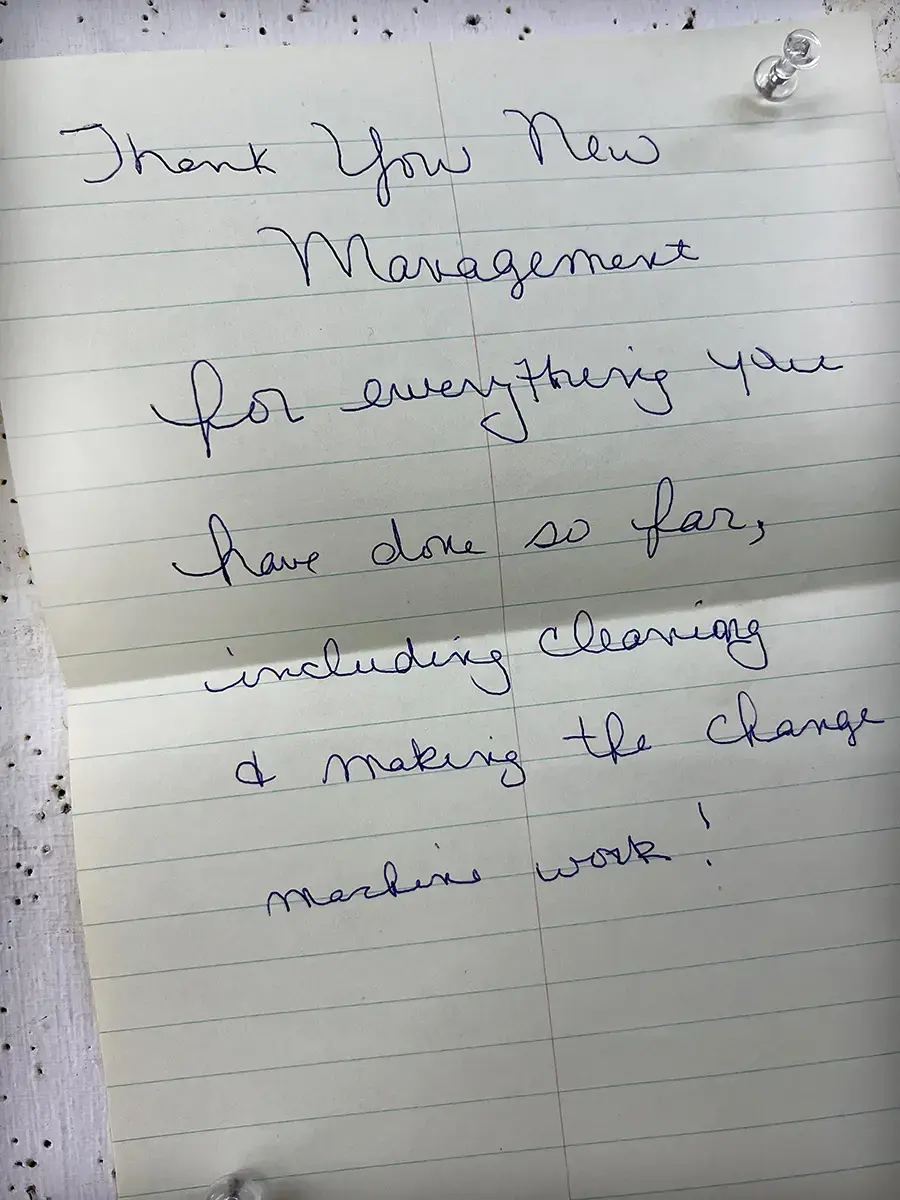 Thank You New
Management
for everything you
have done so far,
including cleaning
& making the change
machine work!